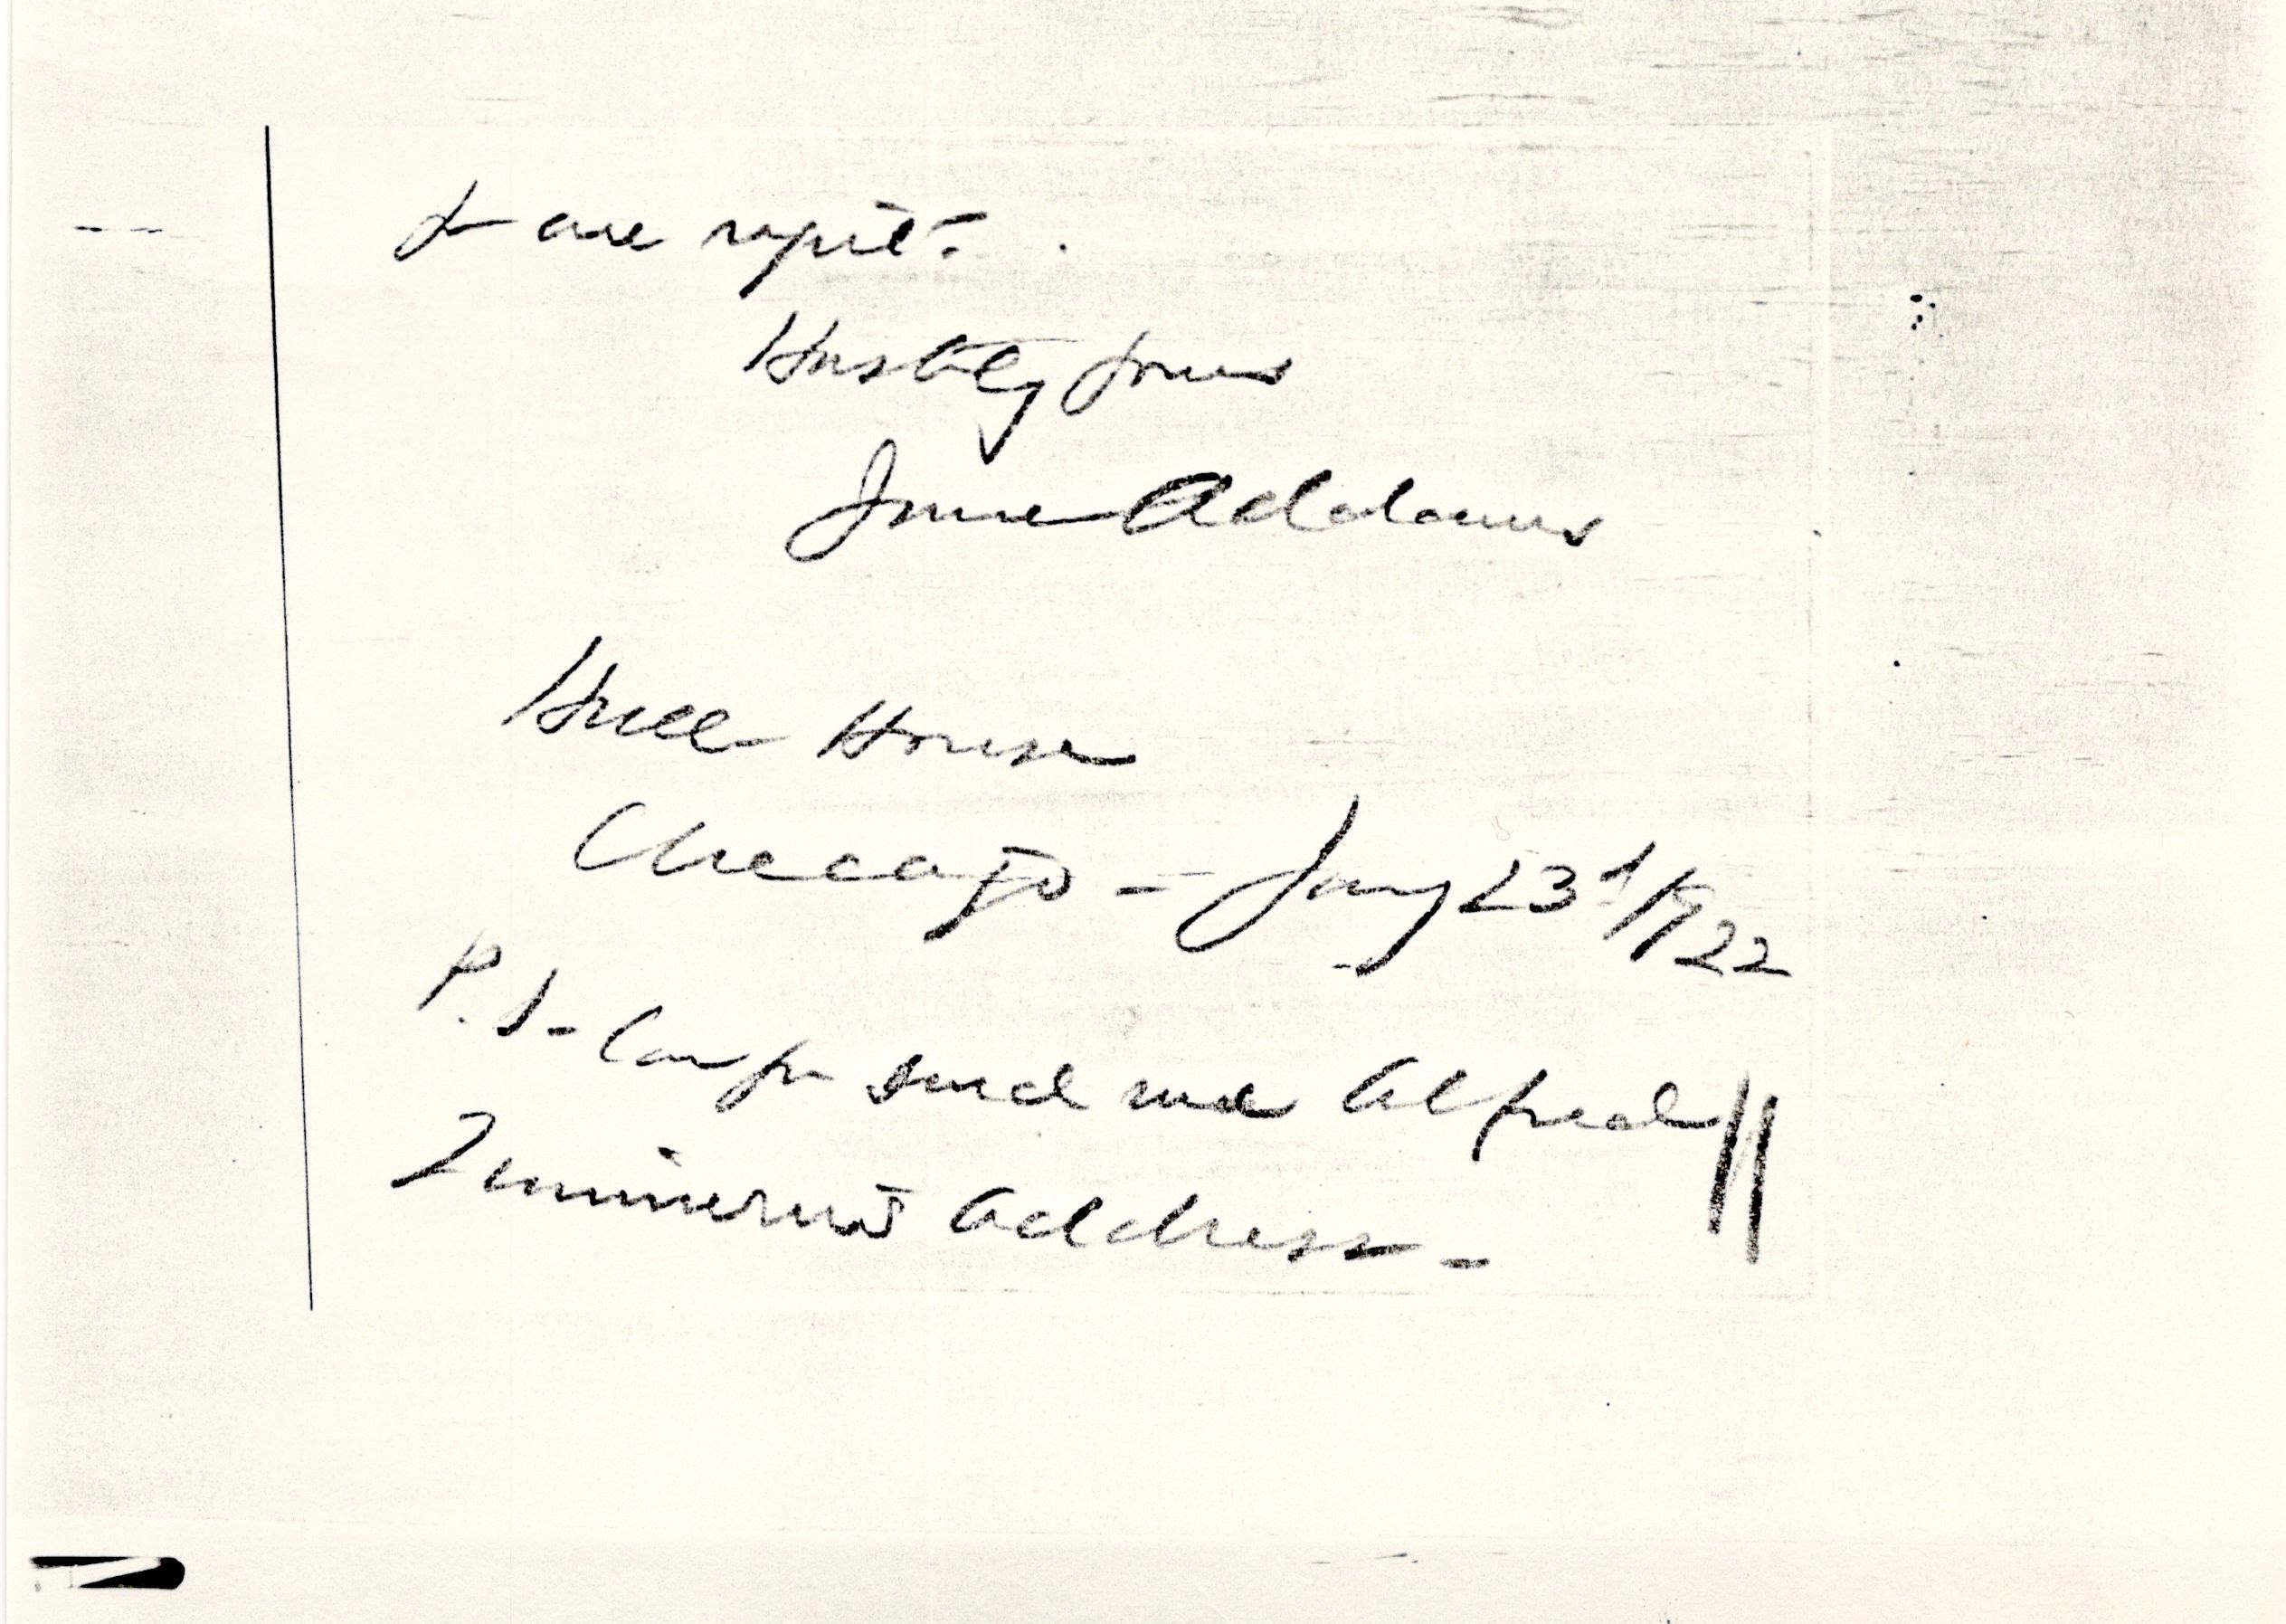 & are right.
Hastily yours
Jane Addams
Hull House
Chicago - Jany 23d/1922
P.S - Can you send me Alfred
Zimmern's address -